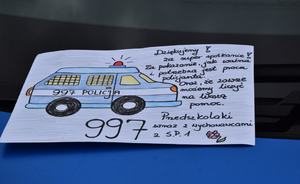 Dziękujemy!
za super spotkanie!
Za pokazanie, jak ważna
i potrzebna jest praca
policjanta
Oraz, że zawsze
możemy liczyć
na Waszą
pomoc.
997 POLICJA
997
Przedszkolaki
wraz z wychowawcami
z S.P. 1